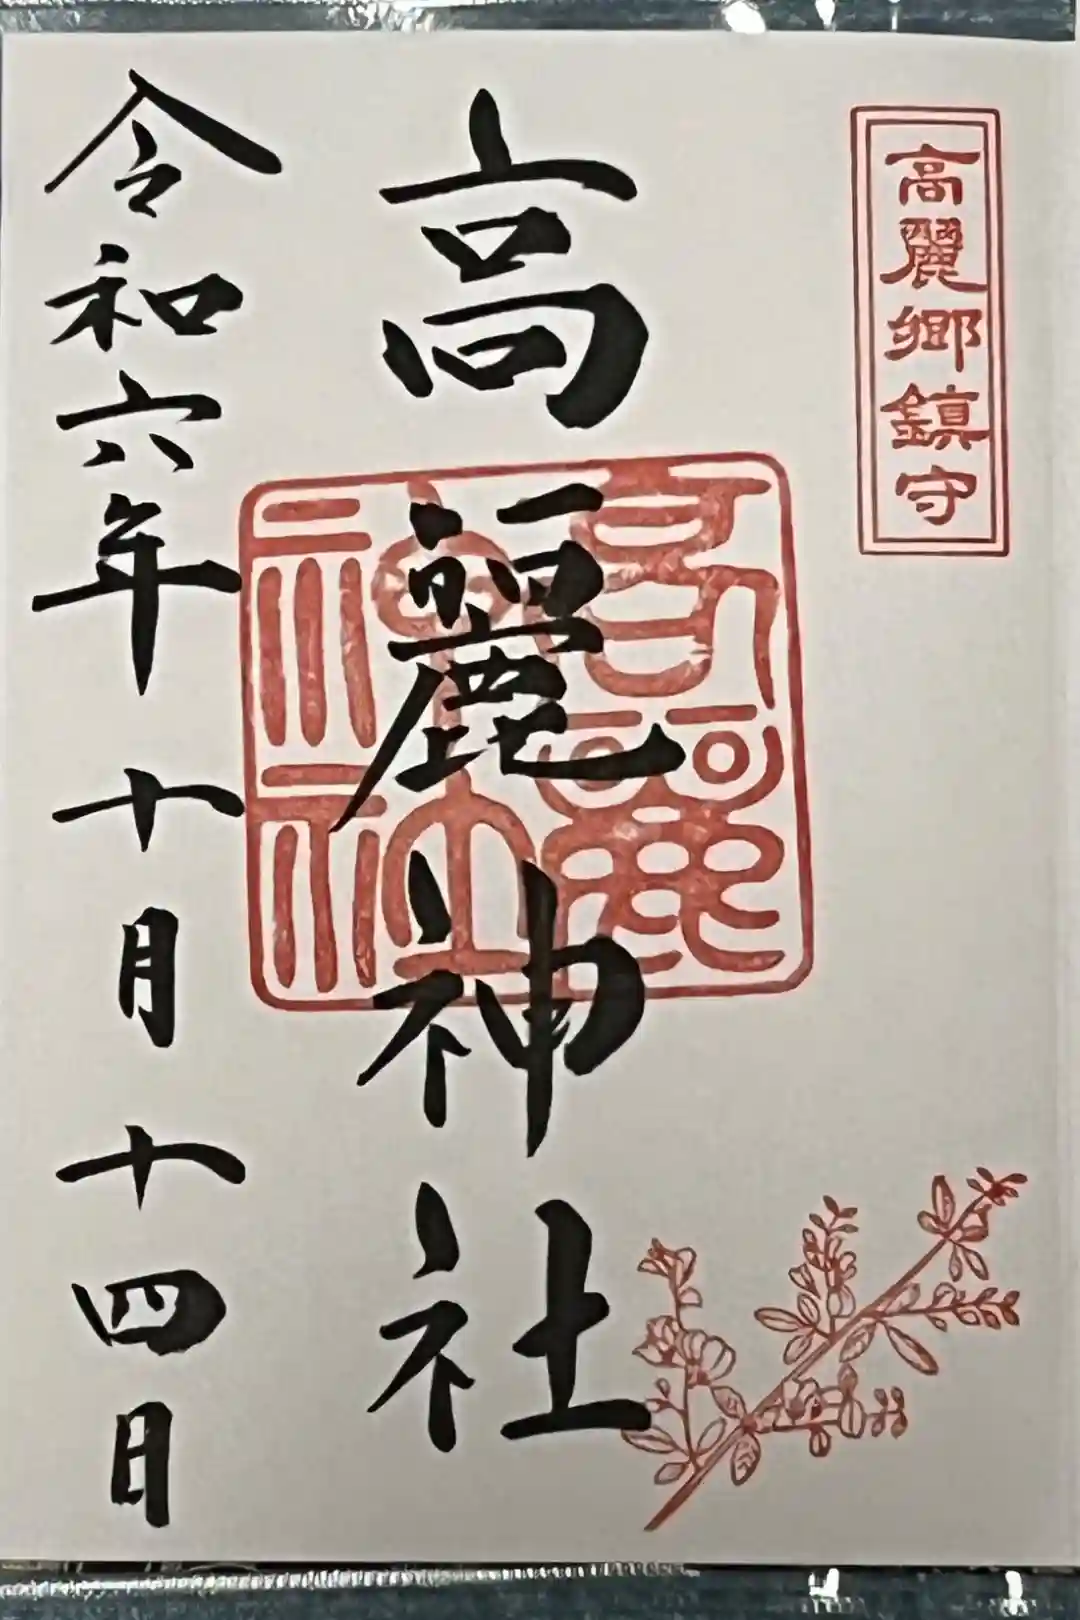 高麗郷鎮守
高麗神社
高麗神社
令和六年十月十四日